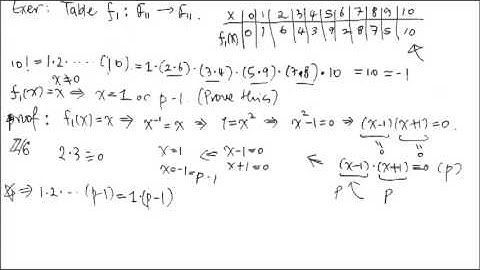 Exer: Table f₁: F₁₁ → F₁₁.
x | 0 | 1 | 2 | 3 | 4 | 5 | 6 | 7 | 8 | 9 | 10
f₁(x) | 0 | 1 | 6 | 4 | 3 | 9 | 2 | 8 | 7 | 5 | 10
10! = 1·2· ····· (10) = 1·(2·6)·(3·4)·(5·9)·(7·8)·10 = 10 = -1
x≠0
f₁(x) = x ⇒ x = 1 or p-1. (Prove this)
proof: f₁(x) = x ⇒ x⁻¹ = x ⇒ 1 = x² ⇒ x²-1=0 ⇒ (x-1)(x+1)=0.
Z/6 2·3 = 0 x=1 ⇐ x-1=0 ⇐ (x-1)·(x+1)=0 (p)
x+1=0
p p
⇒ 1·2· ··· (p-1) = 1·(p-1)